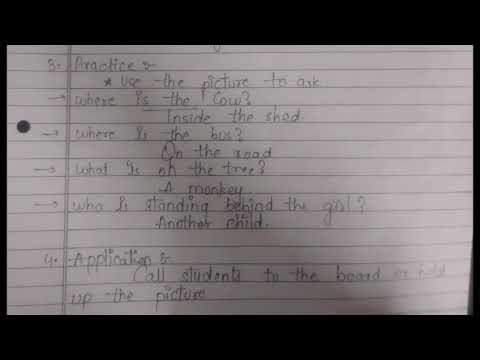 3. Practice :-
* Use the picture to ask
→ where is the Cow?
Inside the shed.
→ where Is the bus?
On the road
→ what Is on the tree?
A monkey.
→ who Is standing behind the girl?
Another child.
4. Application :-
Call students to the board or hold
up the picture